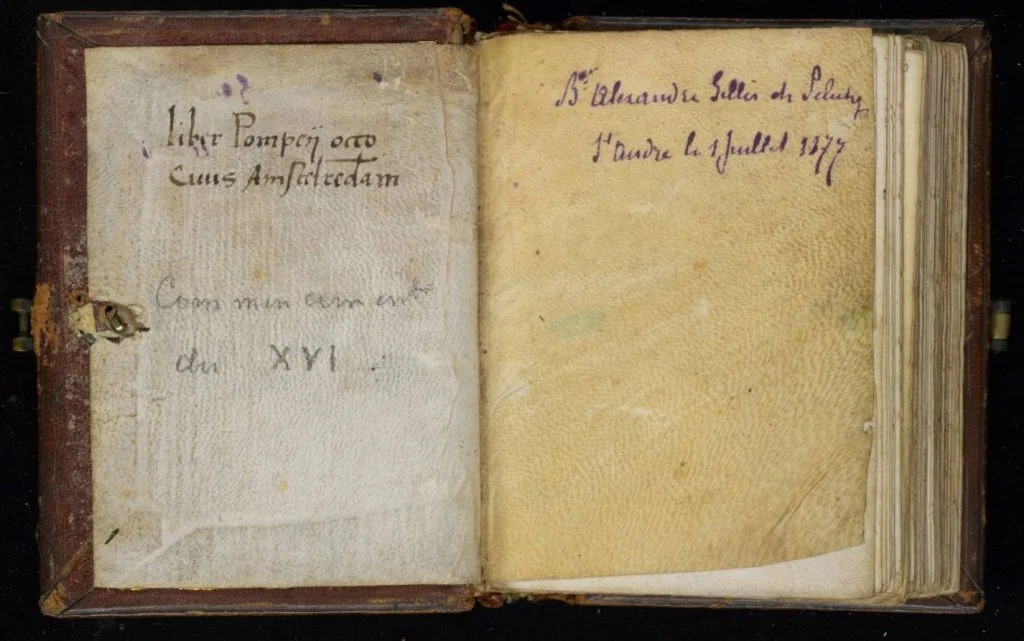 liber Pompeij occo
Civis Amstelredam
Commencement
du XVI
Bon Alexandre Gillès de Pélichy
St André le 1 Juillet 1877